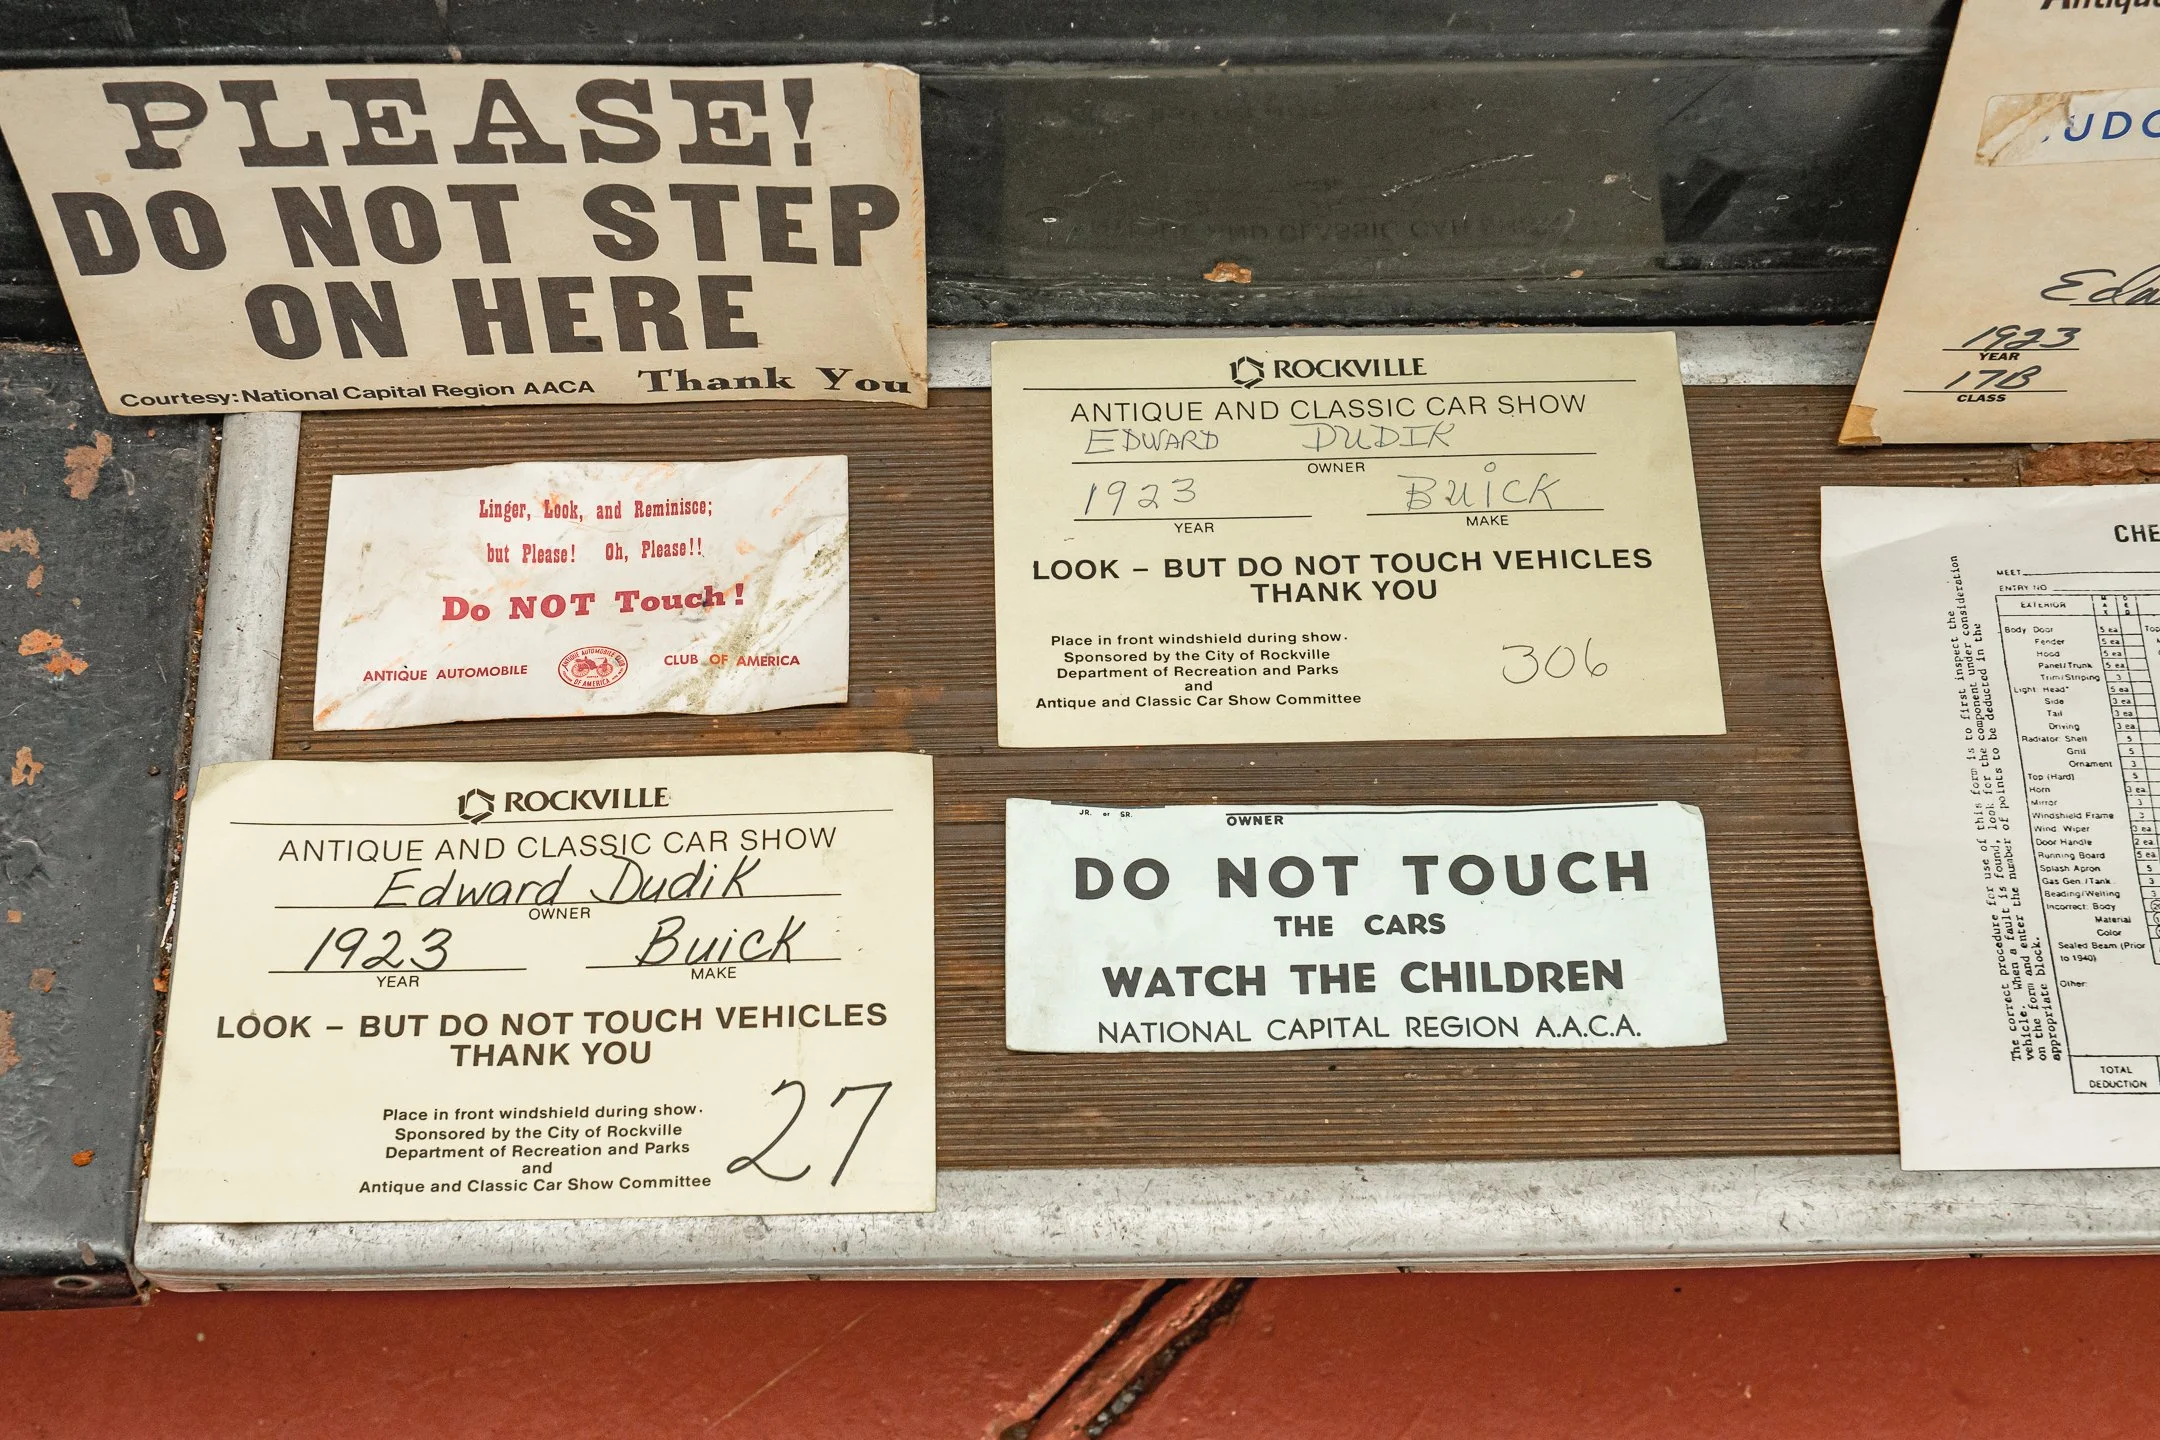 PLEASE!
DO NOT STEP
ON HERE
Courtesy: National Capital Region AACA Thank You
Linger, Look, and Reminisce;
but Please! Oh, Please!!
Do NOT Touch!
ANTIQUE AUTOMOBILE CLUB OF AMERICA
ANTIQUE AUTOMOBILE CLUB
OF AMERICA
ROCKVILLE
ANTIQUE AND CLASSIC CAR SHOW
EDWARD DUDIK
OWNER
1923 BUICK
YEAR MAKE
LOOK – BUT DO NOT TOUCH VEHICLES
THANK YOU
Place in front windshield during show.
Sponsored by the City of Rockville
Department of Recreation and Parks
and
Antique and Classic Car Show Committee
306
ROCKVILLE
ANTIQUE AND CLASSIC CAR SHOW
Edward Dudik
OWNER
1923 Buick
YEAR MAKE
LOOK – BUT DO NOT TOUCH VEHICLES
THANK YOU
Place in front windshield during show.
Sponsored by the City of Rockville
Department of Recreation and Parks
and
Antique and Classic Car Show Committee
27
JR. or SR.
OWNER
DO NOT TOUCH
THE CARS
WATCH THE CHILDREN
NATIONAL CAPITAL REGION A.A.C.A.
1923
YEAR
17B
CLASS
The correct procedure for use of this form is to first inspect the
vehicle. When a fault is found, look for the component under consideration
on the form and enter the number of points to be deducted in the
appropriate block.
MEET
ENTRY NO
EXTERIOR
Body Door 5 ea
Fender 5 ea
Hood 5 ea
Panel/Trunk 5 ea
Trim/Striping 3
Light Head 5 ea
Side 3 ea
Tail 3 ea
Driving 3 ea
Radiator: Shell 5
Grill 5
Ornament 3
Top (Hard) 5
Horn 3 ea
Mirror 3
Windshield Frame 3
Wind Wiper 3 ea
Door Handle 2 ea
Running Board 5 ea
Splash Apron 5
Gas Gen./Tank 3
Beading/Welting 3
Incorrect: Body
Material
Color
Sealed Beam (Prior
to 1940)
Other:
TOTAL
DEDUCTION